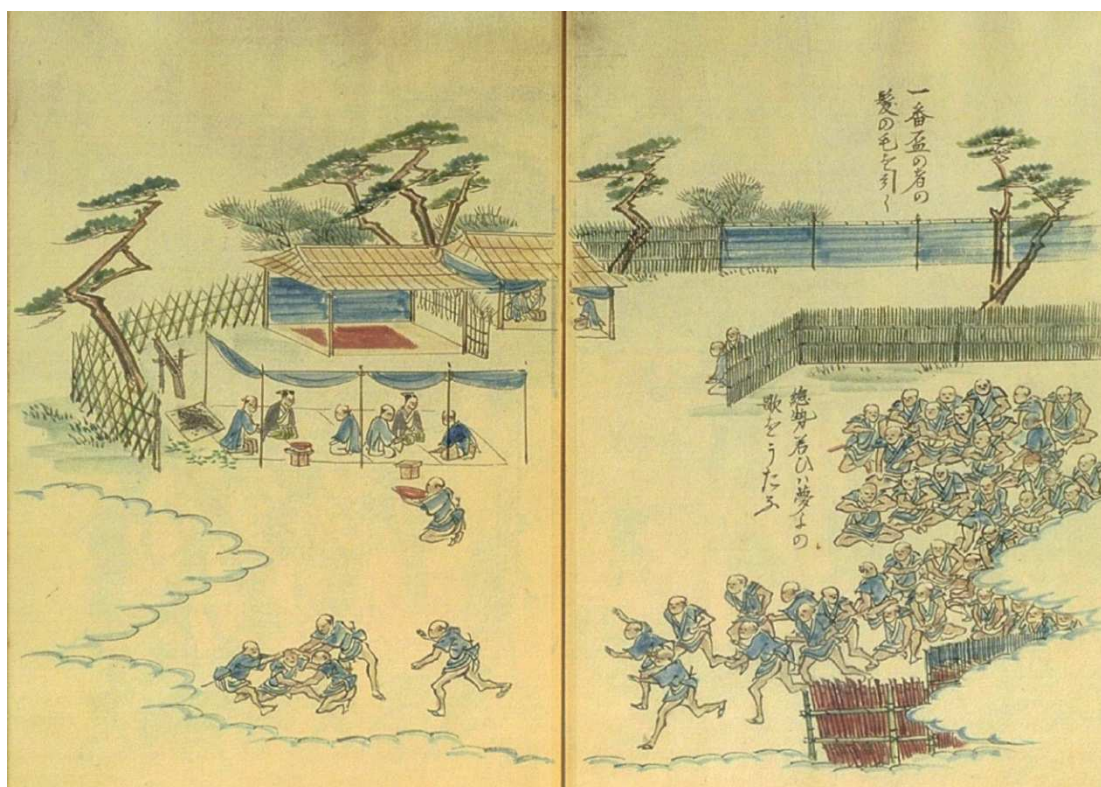 一番盃の者の
髪の毛を引く
惣勢若ひハ夢すの
歌をうたふ